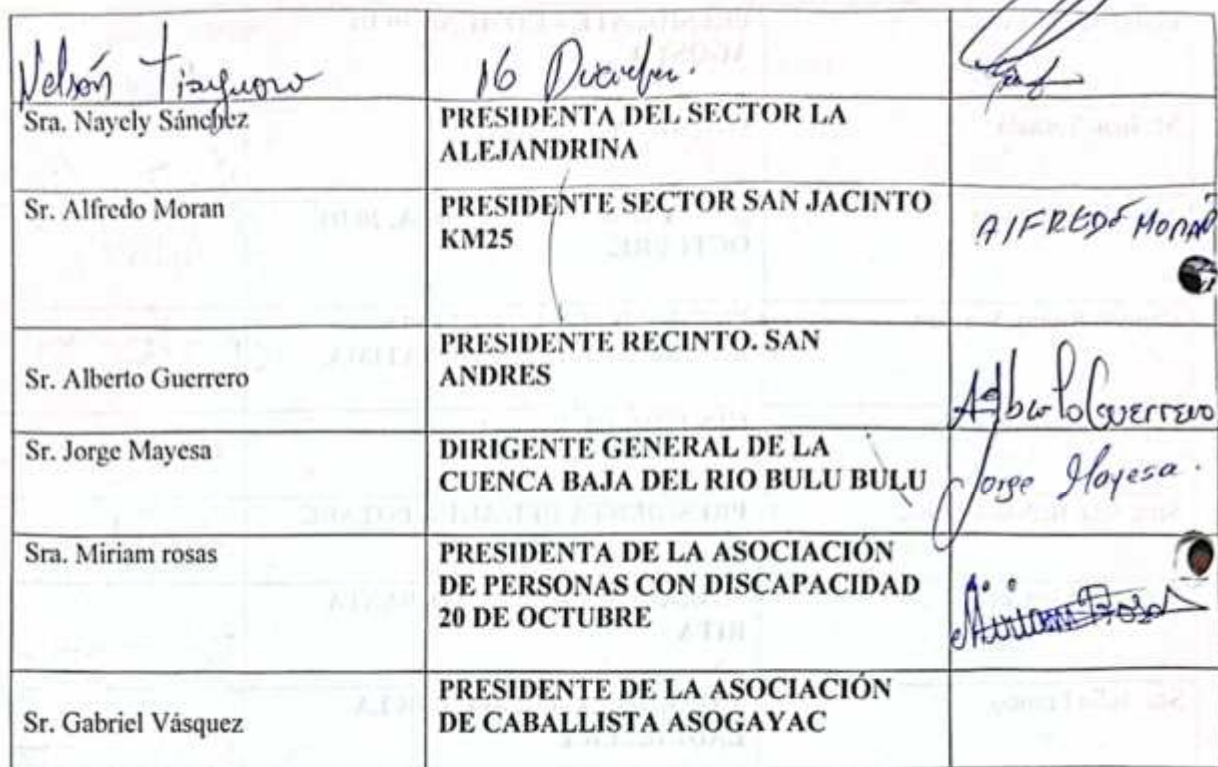 Nelsón Tisguoro
16 Diciembre.
Sra. Nayely Sánchez
PRESIDENTA DEL SECTOR LA
ALEJANDRINA
Sr. Alfredo Moran
PRESIDENTE SECTOR SAN JACINTO
KM25
AlFREDO MORAN
Sr. Alberto Guerrero
PRESIDENTE RECINTO. SAN
ANDRES
Alberto Guerrero
Sr. Jorge Mayesa
DIRIGENTE GENERAL DE LA
CUENCA BAJA DEL RIO BULU BULU
Jorge Mayesa.
Sra. Miriam rosas
PRESIDENTA DE LA ASOCIACIÓN
DE PERSONAS CON DISCAPACIDAD
20 DE OCTUBRE
Miriam Rosas
Sr. Gabriel Vásquez
PRESIDENTE DE LA ASOCIACIÓN
DE CABALLISTA ASOGAYAC